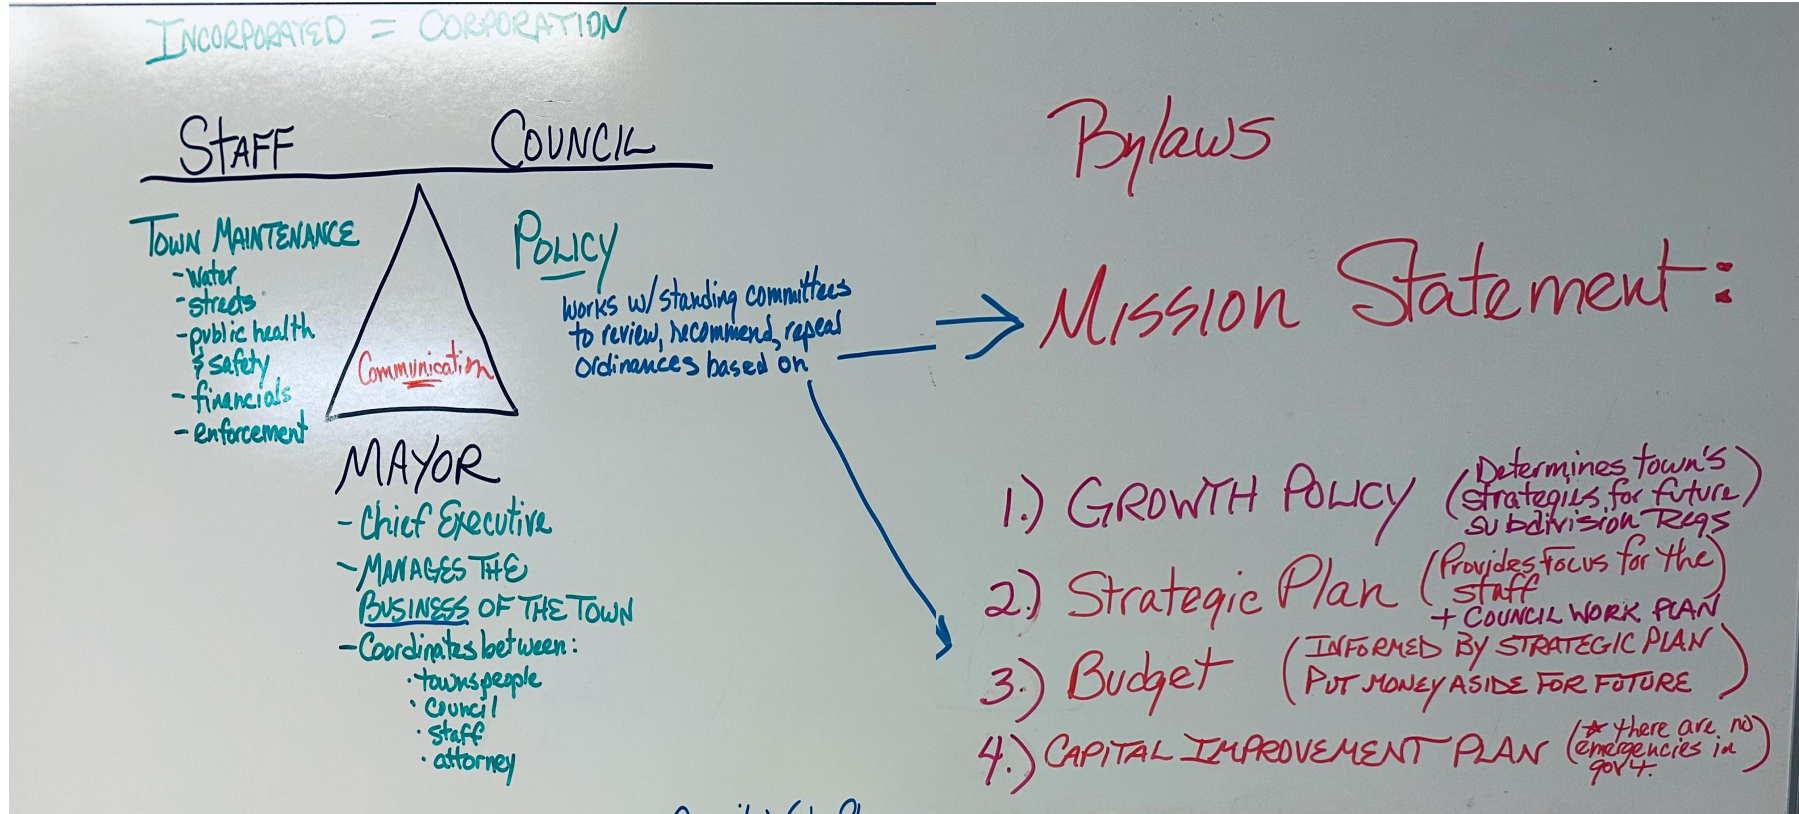 INCORPORATED = CORPORATION
STAFF
COUNCIL
TOWN MAINTENANCE
- water
- streets
- public health
& safety
- financials
- enforcement
Communication
POLICY
works w/ standing committees
to review, recommend, repeal
ordinances based on
MAYOR
- Chief Executive
- MANAGES THE
BUSINESS OF THE TOWN
- Coordinates between:
· townspeople
· council
· staff
· attorney
Bylaws
Mission Statement:
1.) GROWTH POLICY (Determines town's
strategies for future
subdivision Regs)
2.) Strategic Plan (Provides focus for the
staff)
+ COUNCIL WORK PLAN
3.) Budget (INFORMED BY STRATEGIC PLAN
PUT MONEY ASIDE FOR FUTURE)
4.) CAPITAL IMPROVEMENT PLAN (* there are no
emergencies in
gov't.)